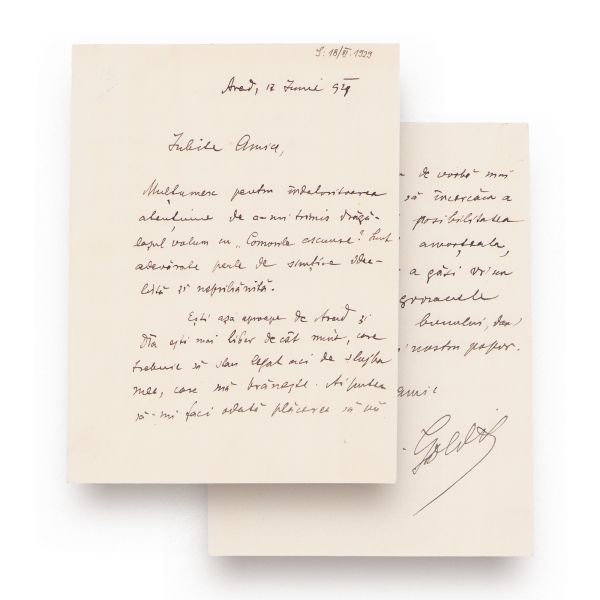 S: 18/VI. 1929
Arad, 12 Iunie 929
Iubite Amice,
Mulțumesc pentru îndatoritoarea
atențiune de a-mi trimis drăgă-
lașul volum cu „Comorile ascunse”. Sunt
adevărate perle de simțire idea-
listă și neprihănită.
Ești așa aproape de Arad și
Dta ești mai liber decât mine, care
trebuie să stau legat aci de slujba
mea, care mă hrănește. Ai putea
să-mi faci odată plăcerea să vii
de vorbă mai
să încercăm a
posibilitatea
amorțeala,
a găsi vr'un
bunului, dar
i nostru popor.
amic
Goldiș